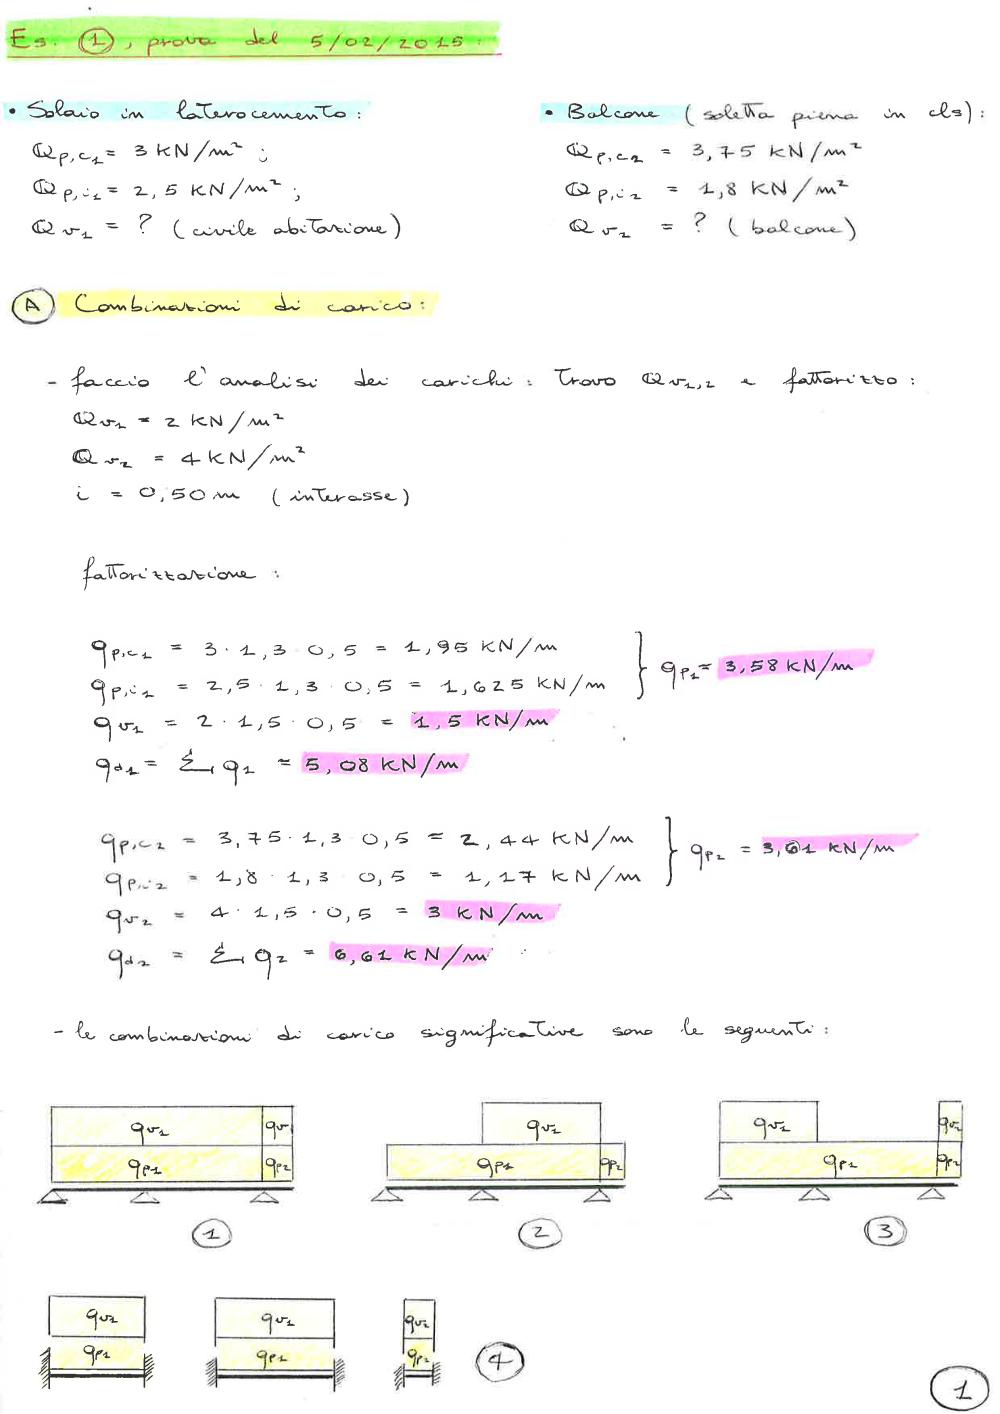 Es. ①, prova del 5/02/2015.
• Solaio in laterocemento:
Qp,c1 = 3 KN/m² ;
Qp,i1 = 2,5 KN/m² ;
Qv1 = ? (civile abitazione)
• Balcone (soletta piena in cls):
Qp,c2 = 3,75 KN/m²
Qp,i2 = 1,8 KN/m²
Qv2 = ? (balcone)
Ⓐ Combinazioni di carico:
- faccio l'analisi dei carichi: trovo Qv1,2 e fattorizzo:
Qv1 = 2 KN/m²
Qv2 = 4 KN/m²
i = 0,50 m (interasse)
fattorizzazione :
qp,c1 = 3 · 1,3 · 0,5 = 1,95 KN/m
qp,i1 = 2,5 · 1,3 · 0,5 = 1,625 KN/m
} qp1 = 3,58 KN/m
qv1 = 2 · 1,5 · 0,5 = 1,5 KN/m
qd1 = Σ q1 = 5,08 KN/m
qp,c2 = 3,75 · 1,3 · 0,5 = 2,44 KN/m
qp,i2 = 1,8 · 1,3 · 0,5 = 1,17 KN/m
} qp2 = 3,61 KN/m
qv2 = 4 · 1,5 · 0,5 = 3 KN/m
qd2 = Σ q2 = 6,61 KN/m
- le combinazioni di carico significative sono le seguenti:
qv1 qv
qp1 qp2
①
qv1
qp1 qp2
②
qv1 qv2
qp1 qp2
③
qv1 qv1 qv2
qp1 qp1 qp2
④
①